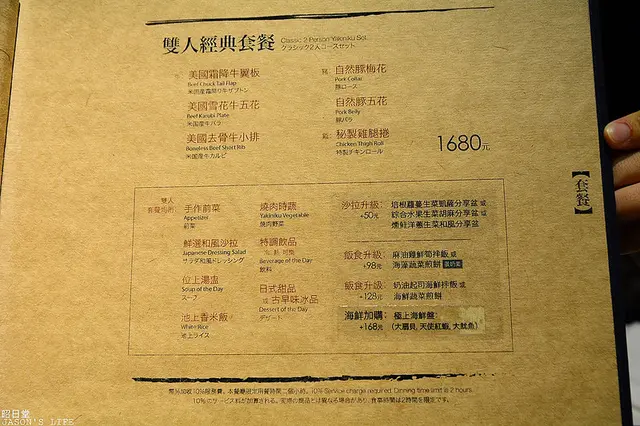 雙人經典套餐
Classic 2 Person Yakiniku Set
クラシック2人コースセット
美國霜降牛翼板
Beef Chuck Tail Flap
米国産霜降り牛ザブトン
美國雪花牛五花
Beef Karubi Plate
米国産牛バラ
美國去骨牛小排
Boneless Beef Short Rib
米国産牛カルビ
豬
自然豚梅花
Pork Collar
豚ロース
自然豚五花
Pork Belly
豚バラ
雞
秘製雞腿捲
Chicken Thigh Roll
特製チキンロール
1680元
【套餐】
雙人
套餐均附
手作前菜
Appetizer
前菜
鮮選和風沙拉
Japanese Dressing Salad
サラダ和風ドレッシング
位上湯盅
Soup of the Day
スープ
池上香米飯
White Rice
池上ライス
燒肉時蔬
Yakiniku Vegetable
焼肉野菜
特調飲品
Beverage of the Day
飲料
日式甜品
或 古早味冰品
Dessert of the Day
デザート
沙拉升級：
+50元
培根蘿蔓生菜凱薩分享盆 或
綜合水果生菜胡麻分享盆 或
燻鮭洋蔥生菜和風分享盆
飯食升級：
+98元
麻油雞鮮菇拌飯 或
海藻蔬菜煎餅
飯食升級：
+128元
奶油起司海鮮拌飯 或
海鮮蔬菜煎餅
海鮮加購：
+168元
極上海鮮盤：
(大扇貝, 天使紅蝦, 大魷魚)
需另加收10%服務費。本餐廳限定用餐時間二個小時。10% Service charge required. Dinning time limit is 2 hours.
10%のサービス料が加算される。実際の商品とは異なる場合があり、食事時間は2時間を限定です。
昭日堂
JASON'S LIFE